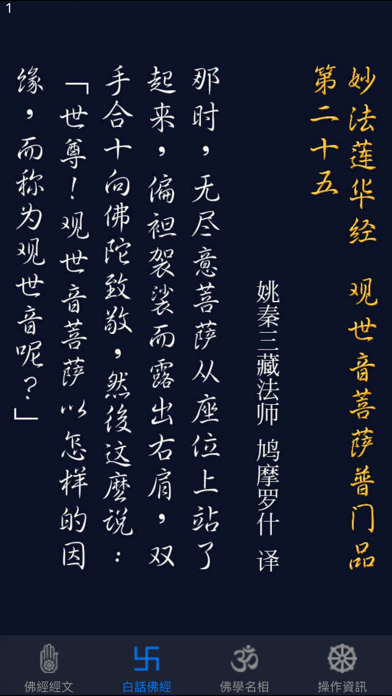 1
妙法莲华经 观世音菩萨普门品
第二十五
姚秦三藏法师 鸠摩罗什 译
那时，无尽意菩萨从座位上站了
起来，偏袒袈裟而露出右肩，双
手合十向佛陀致敬，然後这麽说：
「世尊！观世音菩萨以怎样的因
缘，而称为观世音呢？」
佛經經文
白話佛經
佛學名相
操作資訊